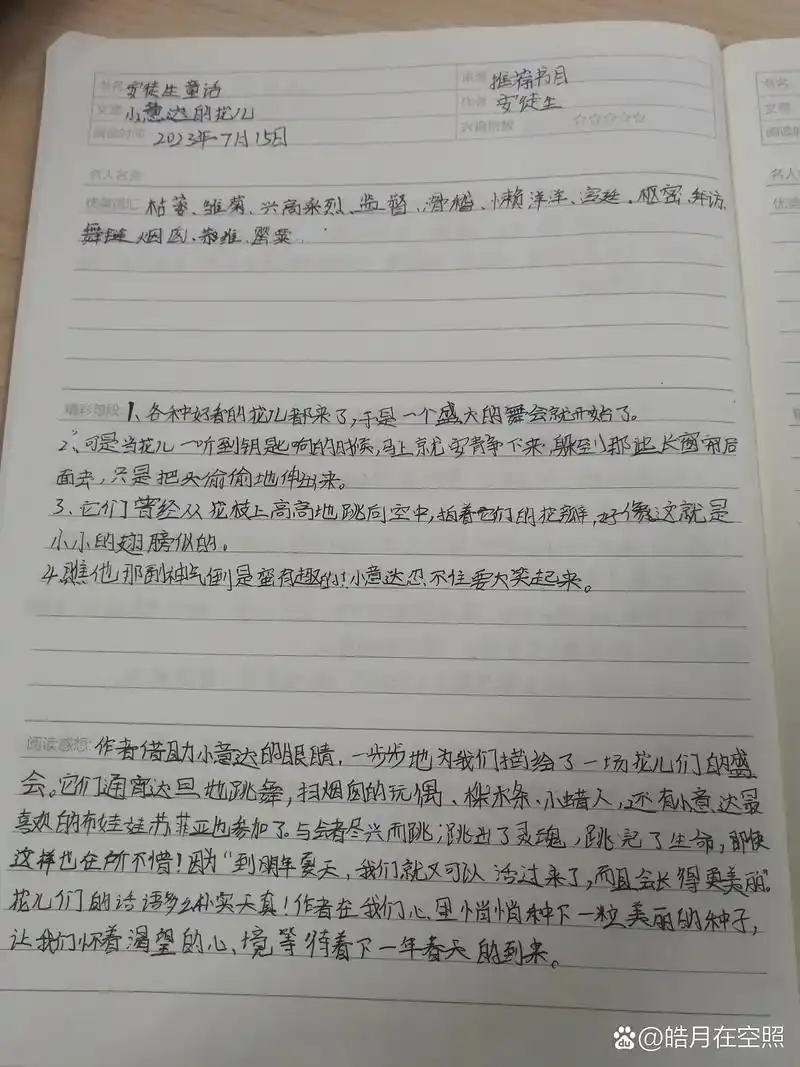 书名 安徒生童话 来源 推荐书目
文章 小意达的花儿 作者 安徒生
阅读时间 2023年7月15日 阅读指数 ☆☆☆☆☆
名人名言
优美词汇 枯萎、雏菊、兴高采烈、监督、滑稽、懒洋洋、宫廷、枢密、拜访、
舞 烟囱、
精彩句段 1、各种好看的花儿都来了,于是一个盛大的舞会就开始了。
2、可是当花儿一听到钥匙响的时候,马上就安静下来,躲到那些长窗帘后
面去,只是把头偷偷地伸出来。
3、它们曾经从花枝上高高地跳向空中,拍着它们的花瓣,好像这就是
小小的翅膀似的。
4、瞧他那副神气倒是蛮有趣的!小意达忍不住要大笑起来。
阅读感想: 作者借助小意达的眼睛,一步步地为我们描绘了一场花儿们的盛
会。它们通宵达旦地跳舞,扫烟囱的玩偶、桦木条、小蜡人,还有小意达最
喜欢的布娃娃苏菲亚也参加了。与会者尽兴而跳,跳出了灵魂,跳完了生命,即使
这样也在所不惜!因为“到明年夏天,我们就又可以活过来了,而且会长得更美丽”。
花儿们的话语多么朴实天真!作者在我们心里悄悄种下一粒美丽的种子,
让我们怀着渴望的心、境等待着下一年春天的到来。
书名
文章
阅读时
名人名
优美
@皓月在空照